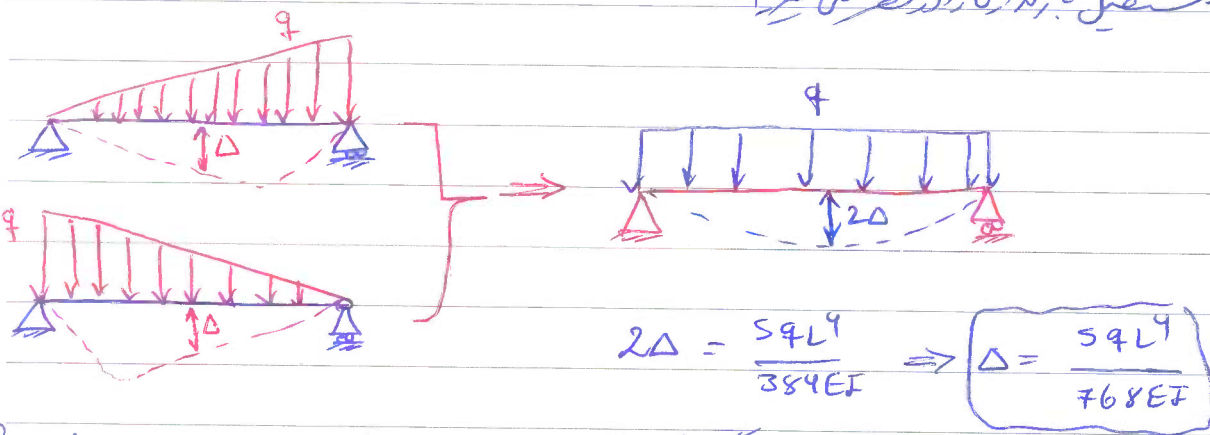 q
Δ
q
Δ
q
2Δ
2Δ = 5qL⁴/384EI ⇒ Δ = 5qL⁴/768EI